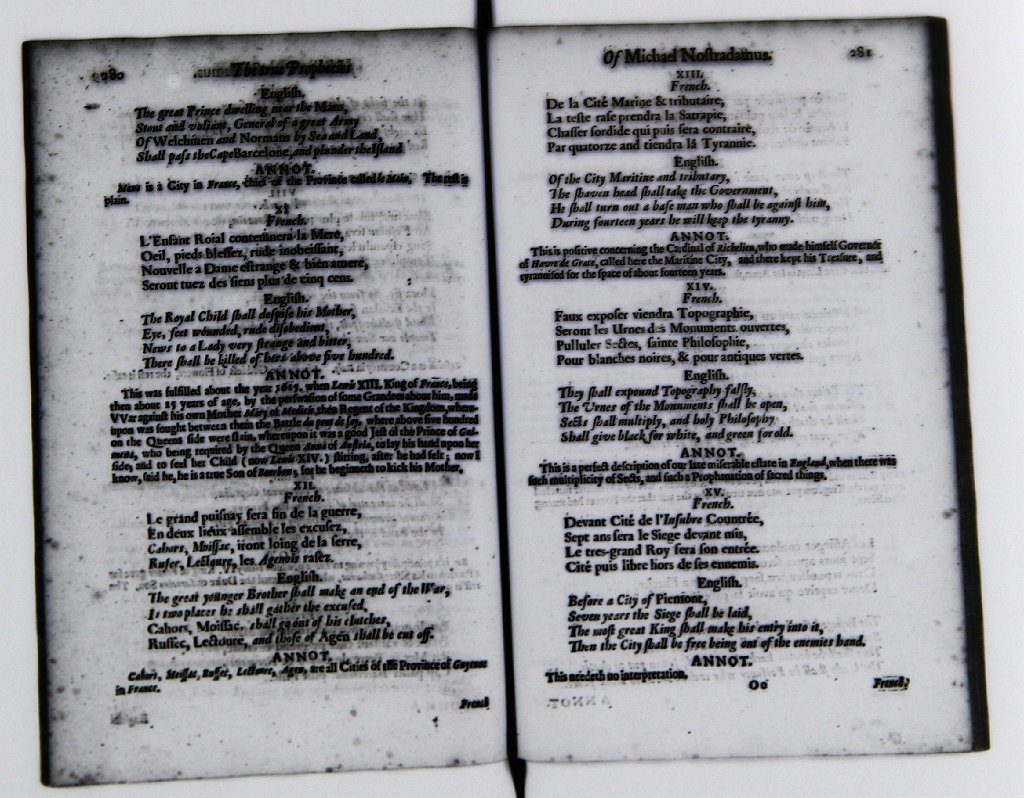 280 The true Prophecies
English.
The great Prince dwelling near the Mans,
Stout and valiant, General of a great Army
Of Welchmen and Normans by Sea and Land,
Shall pass the Cape Barcelone, and plunder the Island
ANNOT.
Mans is a City in France, chief of the Province called le Main, The rest is
plain.
XI.
French.
L'Enfant Roial contemnera la Mere,
Oeil, pieds blessez, rude inobeissant,
Nouvelle a Dame estrange & bien amere,
Seront tuez des siens plus de cinq cens.
English.
The Royal Child shall despise his Mother,
Eye, feet wounded, rude disobedient,
News to a Lady very strange and bitter,
There shall be killed of hers above five hundred.
ANNOT.
This was fulfilled about the year 1615. when Lewis XIII. King of France, being
then about 15 years of age, by the perswasion of some Grandees about him, made
VVar against his own Mother Mary of Medicis, then Regent of the Kingdom, where-
upon was fought between them the Battle du pont de Say, where above five hundred
on the Queens side were slain, whereupon it was a good Jest of the Prince of Gui-
mené, who being required by the Queen Anna of Austria, to lay his hand upon her
side, and to feel her Child (now Lewis XIV.) stirring, after he had felt; now I
know, said he, he is a true Son of Bourbon, for he beginneth to kick his Mother.
XII.
French.
Le grand puisnay sera fin de la guerre,
En deux lieux assemble les excusez,
Cahors, Moissac, iront loing de la serre,
Rusec, Lectoure, les Agenois rasez.
English.
The great younger Brother shall make an end of the War,
In two places he shall gather the excused,
Cahors, Moissac, shall go out of his clutches,
Russec, Lectoure, and those of Agen shall be cut off.
ANNOT.
Cahors, Moissac, Russec, Lectoure, Agen, are all Cities of the Province of Guyenne
in France.
French
Of Michael Nostradamus. 281
XIII.
French.
De la Cité Marine & tributaire,
La teste rase prendra la Satrapie,
Chasser sordide qui puis sera contraire,
Par quatorze and tiendra la Tyrannie.
English.
Of the City Maritine and tributary,
The shaven head shall take the Government,
He shall turn out a base man who shall be against him,
During fourteen years he will keep the tyranny.
ANNOT.
This is positive concerning the Cardinal of Richelieu, who made himself Governor
of Havre de Grace, called here the Maritine City, and there kept his Treasure, and
tyrannised for the space of about fourteen years.
XIV.
French.
Faux exposer viendra Topographie,
Seront les Urnes des Monuments ouvertes,
Pulluler Sectes, sainte Philosophie,
Pour blanches noires, & pour antiques vertes.
English.
They shall expound Topography falsly,
The Urnes of the Monuments shall be open,
Sects shall multiply, and holy Philosophy
Shall give black for white, and green for old.
ANNOT.
This is a perfect description of our late miserable estate in England, when there was
such multiplicity of Sects, and such a Prophanation of sacred things.
XV.
French.
Devant Cité de l'Insubre Countrée,
Sept ans sera le Siege devant mis,
Le tres-grand Roy sera son entrée.
Cité puis libre hors de ses ennemis.
English.
Before a City of Piemont,
Seven years the Siege shall be laid,
The most great King shall make his entry into it,
Then the City shall be free being out of the enemies hand.
ANNOT.
This needeth no interpretation.
Oo French?